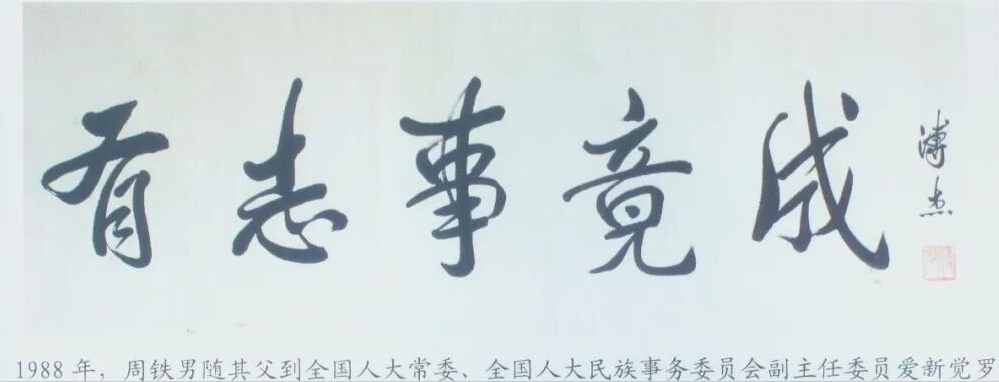 有志事竟成
溥杰
1988 年，周铁男随其父到全国人大常委、全国人大民族事务委员会副主任委员爱新觉罗